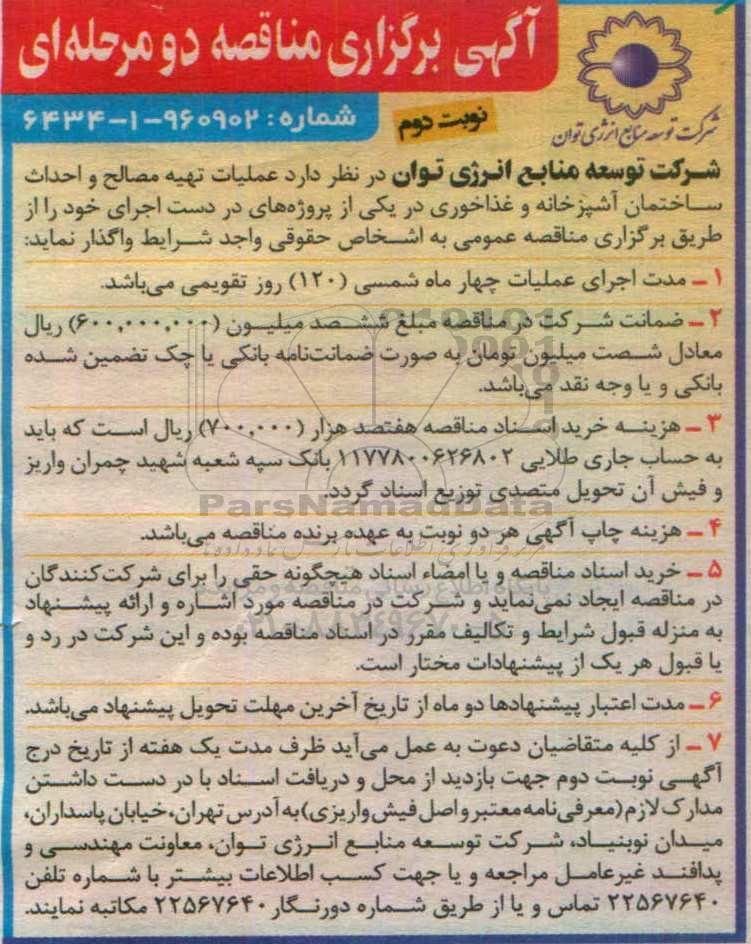 آگهی برگزاری مناقصه دو مرحله‌ای
شماره: ۹۶۰۹۰۲-۱-۶۴۳۴
نوبت دوم
شرکت توسعه منابع انرژی توان
شرکت توسعه منابع انرژی توان در نظر دارد عملیات تهیه مصالح و احداث
ساختمان آشپزخانه و غذاخوری در یکی از پروژه‌های در دست اجرای خود را از
طریق برگزاری مناقصه عمومی به اشخاص حقوقی واجد شرایط واگذار نماید:
۱ – مدت اجرای عملیات چهار ماه شمسی (۱۲۰) روز تقویمی می‌باشد.
۲ – ضمانت شرکت در مناقصه مبلغ ششصد میلیون (۶۰۰,۰۰۰,۰۰۰) ریال
معادل شصت میلیون تومان به صورت ضمانت‌نامه بانکی یا چک تضمین شده
بانکی و یا وجه نقد می‌باشد.
۳ – هزینه خرید اسناد مناقصه هفتصد هزار (۷۰۰,۰۰۰) ریال است که باید
به حساب جاری طلایی ۱۱۷۷۸۰۰۶۲۶۸۰۲ بانک سپه شعبه شهید چمران واریز
و فیش آن تحویل متصدی توزیع اسناد گردد.
ParsNamadData
۴ – هزینه چاپ آگهی هر دو نوبت به عهده برنده مناقصه می‌باشد.
۵ – خرید اسناد مناقصه و یا امضاء اسناد هیچگونه حقی را برای شرکت‌کنندگان
در مناقصه ایجاد نمی‌نماید و شرکت در مناقصه مورد اشاره و ارائه پیشنهاد
به منزله قبول شرایط و تکالیف مقرر در اسناد مناقصه بوده و این شرکت در رد و
یا قبول هر یک از پیشنهادات مختار است.
۶ – مدت اعتبار پیشنهادها دو ماه از تاریخ آخرین مهلت تحویل پیشنهاد می‌باشد.
۷ – از کلیه متقاضیان دعوت به عمل می‌آید ظرف مدت یک هفته از تاریخ درج
آگهی نوبت دوم جهت بازدید از محل و دریافت اسناد با در دست داشتن
مدارک لازم (معرفی‌نامه معتبر و اصل فیش واریزی) به آدرس تهران، خیابان پاسداران،
میدان نوبنیاد، شرکت توسعه منابع انرژی توان، معاونت مهندسی و
پدافند غیرعامل مراجعه و یا جهت کسب اطلاعات بیشتر با شماره تلفن
۲۲۵۶۷۶۴۰ تماس و یا از طریق شماره دورنگار ۲۲۵۶۷۶۴۰ مکاتبه نمایند.